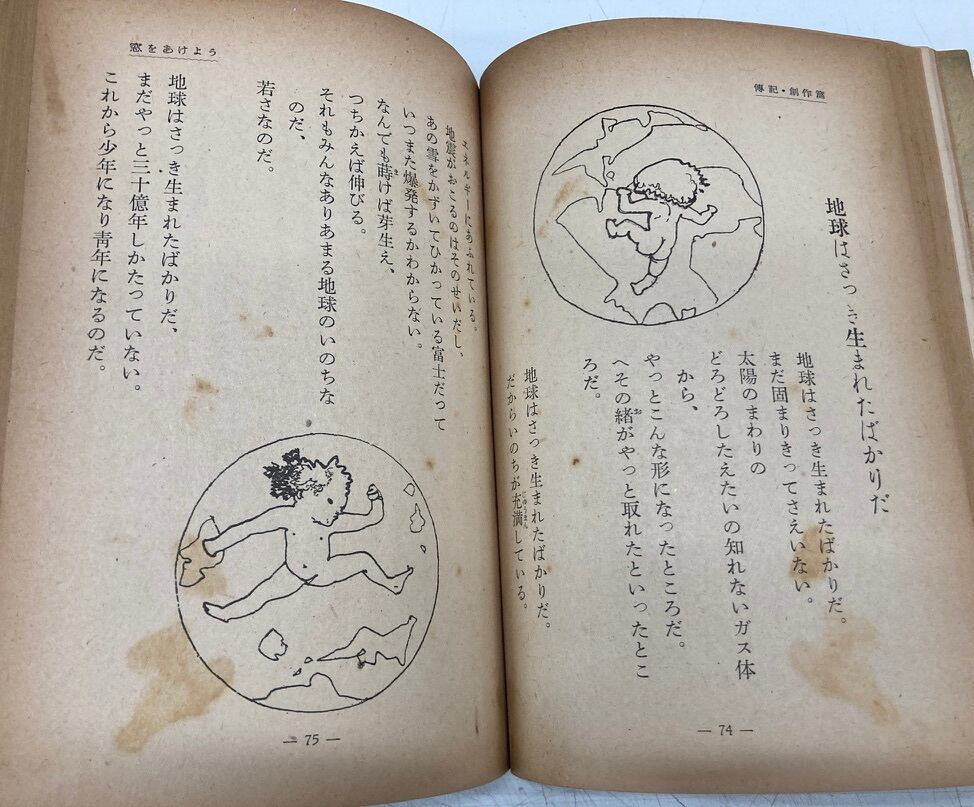 傳記・創作篇
地球はさっき生まれたばかりだ
地球はさっき生まれたばかりだ。
まだ固まりきってさえいない。
太陽のまわりの
どろどろしたえたいの知れないガス体
から、
やっとこんな形になったところだ。
へその緒がやっと取れたといったとこ
ろだ。
地球はさっき生まれたばかりだ。
だからいのちが充満している。
— 74 —
窓をあけよう
エネルギーにあふれている。
地震がおこるのはそのせいだし、
あの雪をかずいてひかっている富士だって
いつまた爆発するかわからない。
なんでも蒔けば芽生え、
つちかえば伸びる。
それもみんなありあまる地球のいのちな
のだ、
若さなのだ。
地球はさっき生まれたばかりだ、
まだやっと三十億年しかたっていない。
これから少年になり青年になるのだ。
— 75 —